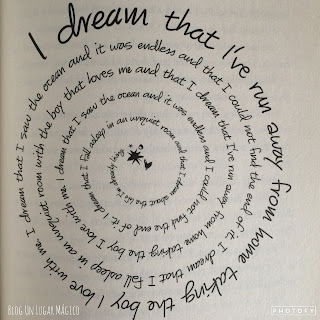 I dream that I've run away from home taking the boy I love with me. I dream that I saw the ocean and it was endless and that I could not find the end of it. I dream that I fall asleep in an unquiet room with the boy that loves me and that I dream that I've run away from home taking the boy I love with me. I dream that I saw the ocean and it was endless and I could not find the end of it. I dream that I fall asleep in an unquiet room and that I dream about the life already living
BLOG UN LUGAR MÁGICO
PHOTOFY